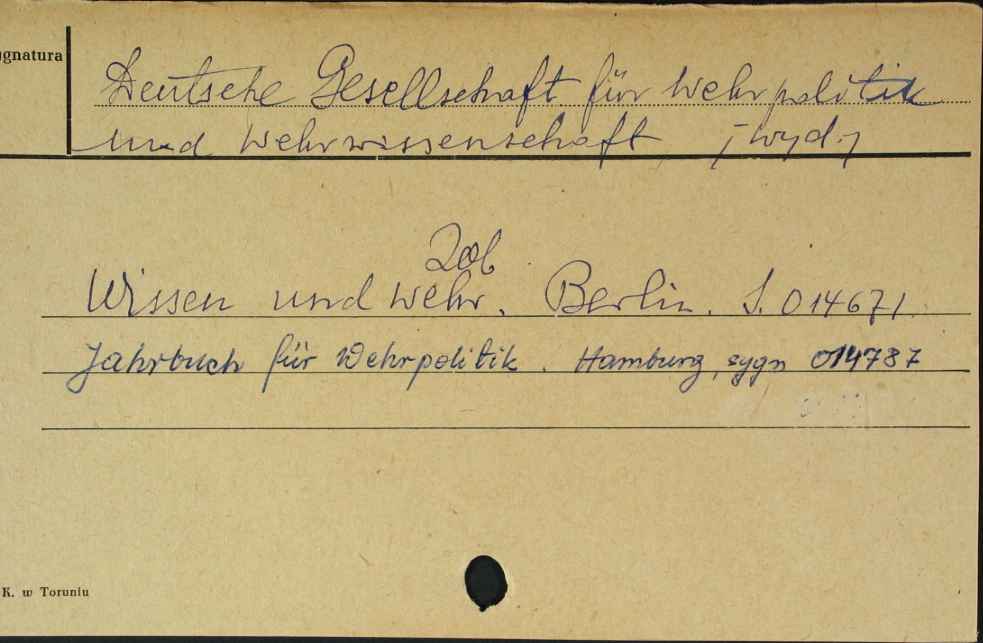 ygnatura
Deutsche Gesellschaft für Wehrpolitik
und Wehrwissenschaft [wyd.]
Zob
Wissen und Wehr. Berlin. S. 014671
Jahrbuch für Wehrpolitik. Hamburg, sygn 014787
K. w Toruniu